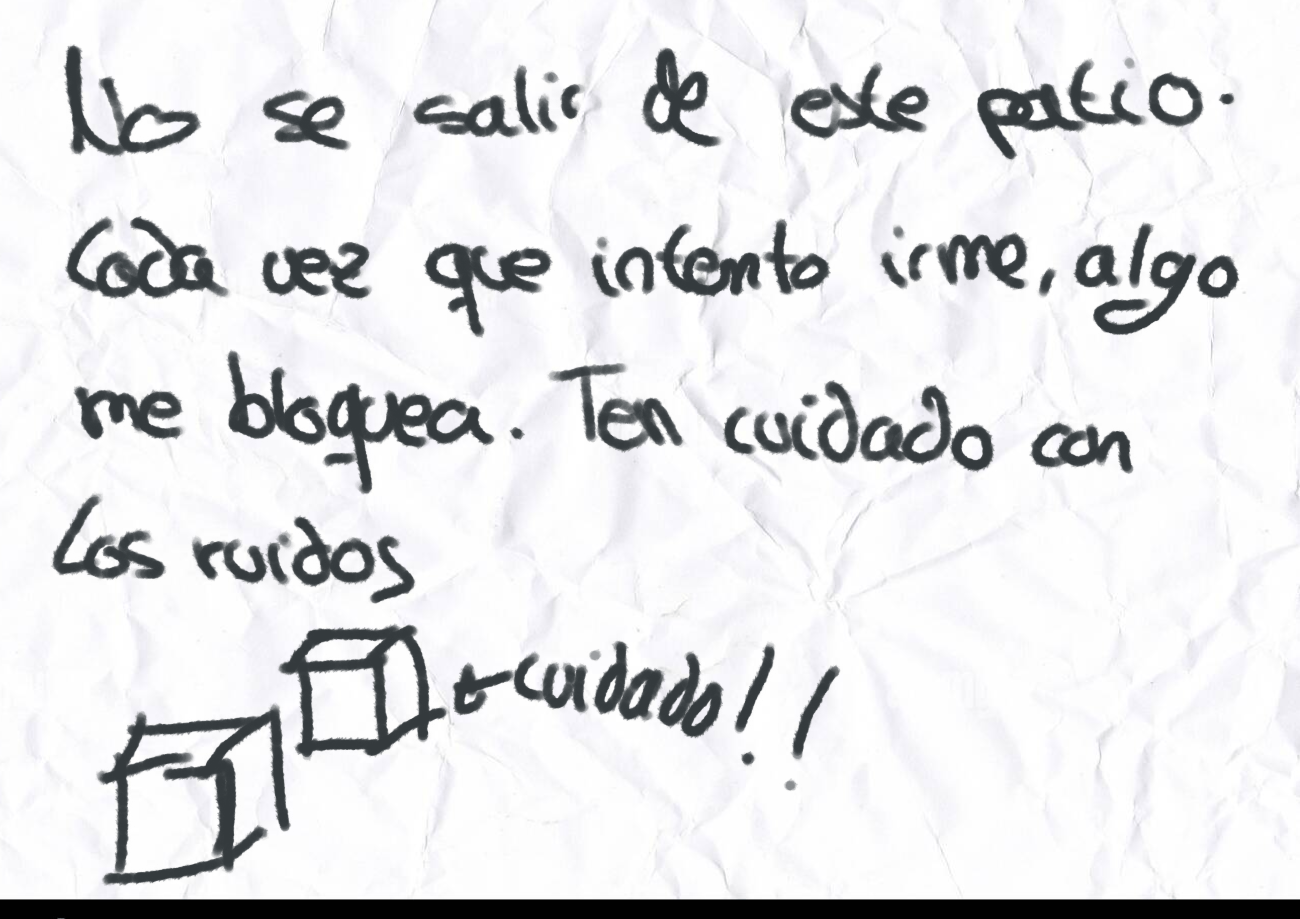 No se salir de este patio.
Cada vez que intento irme, algo
me bloquea. Ten cuidado con
Los ruidos
←cuidado!!